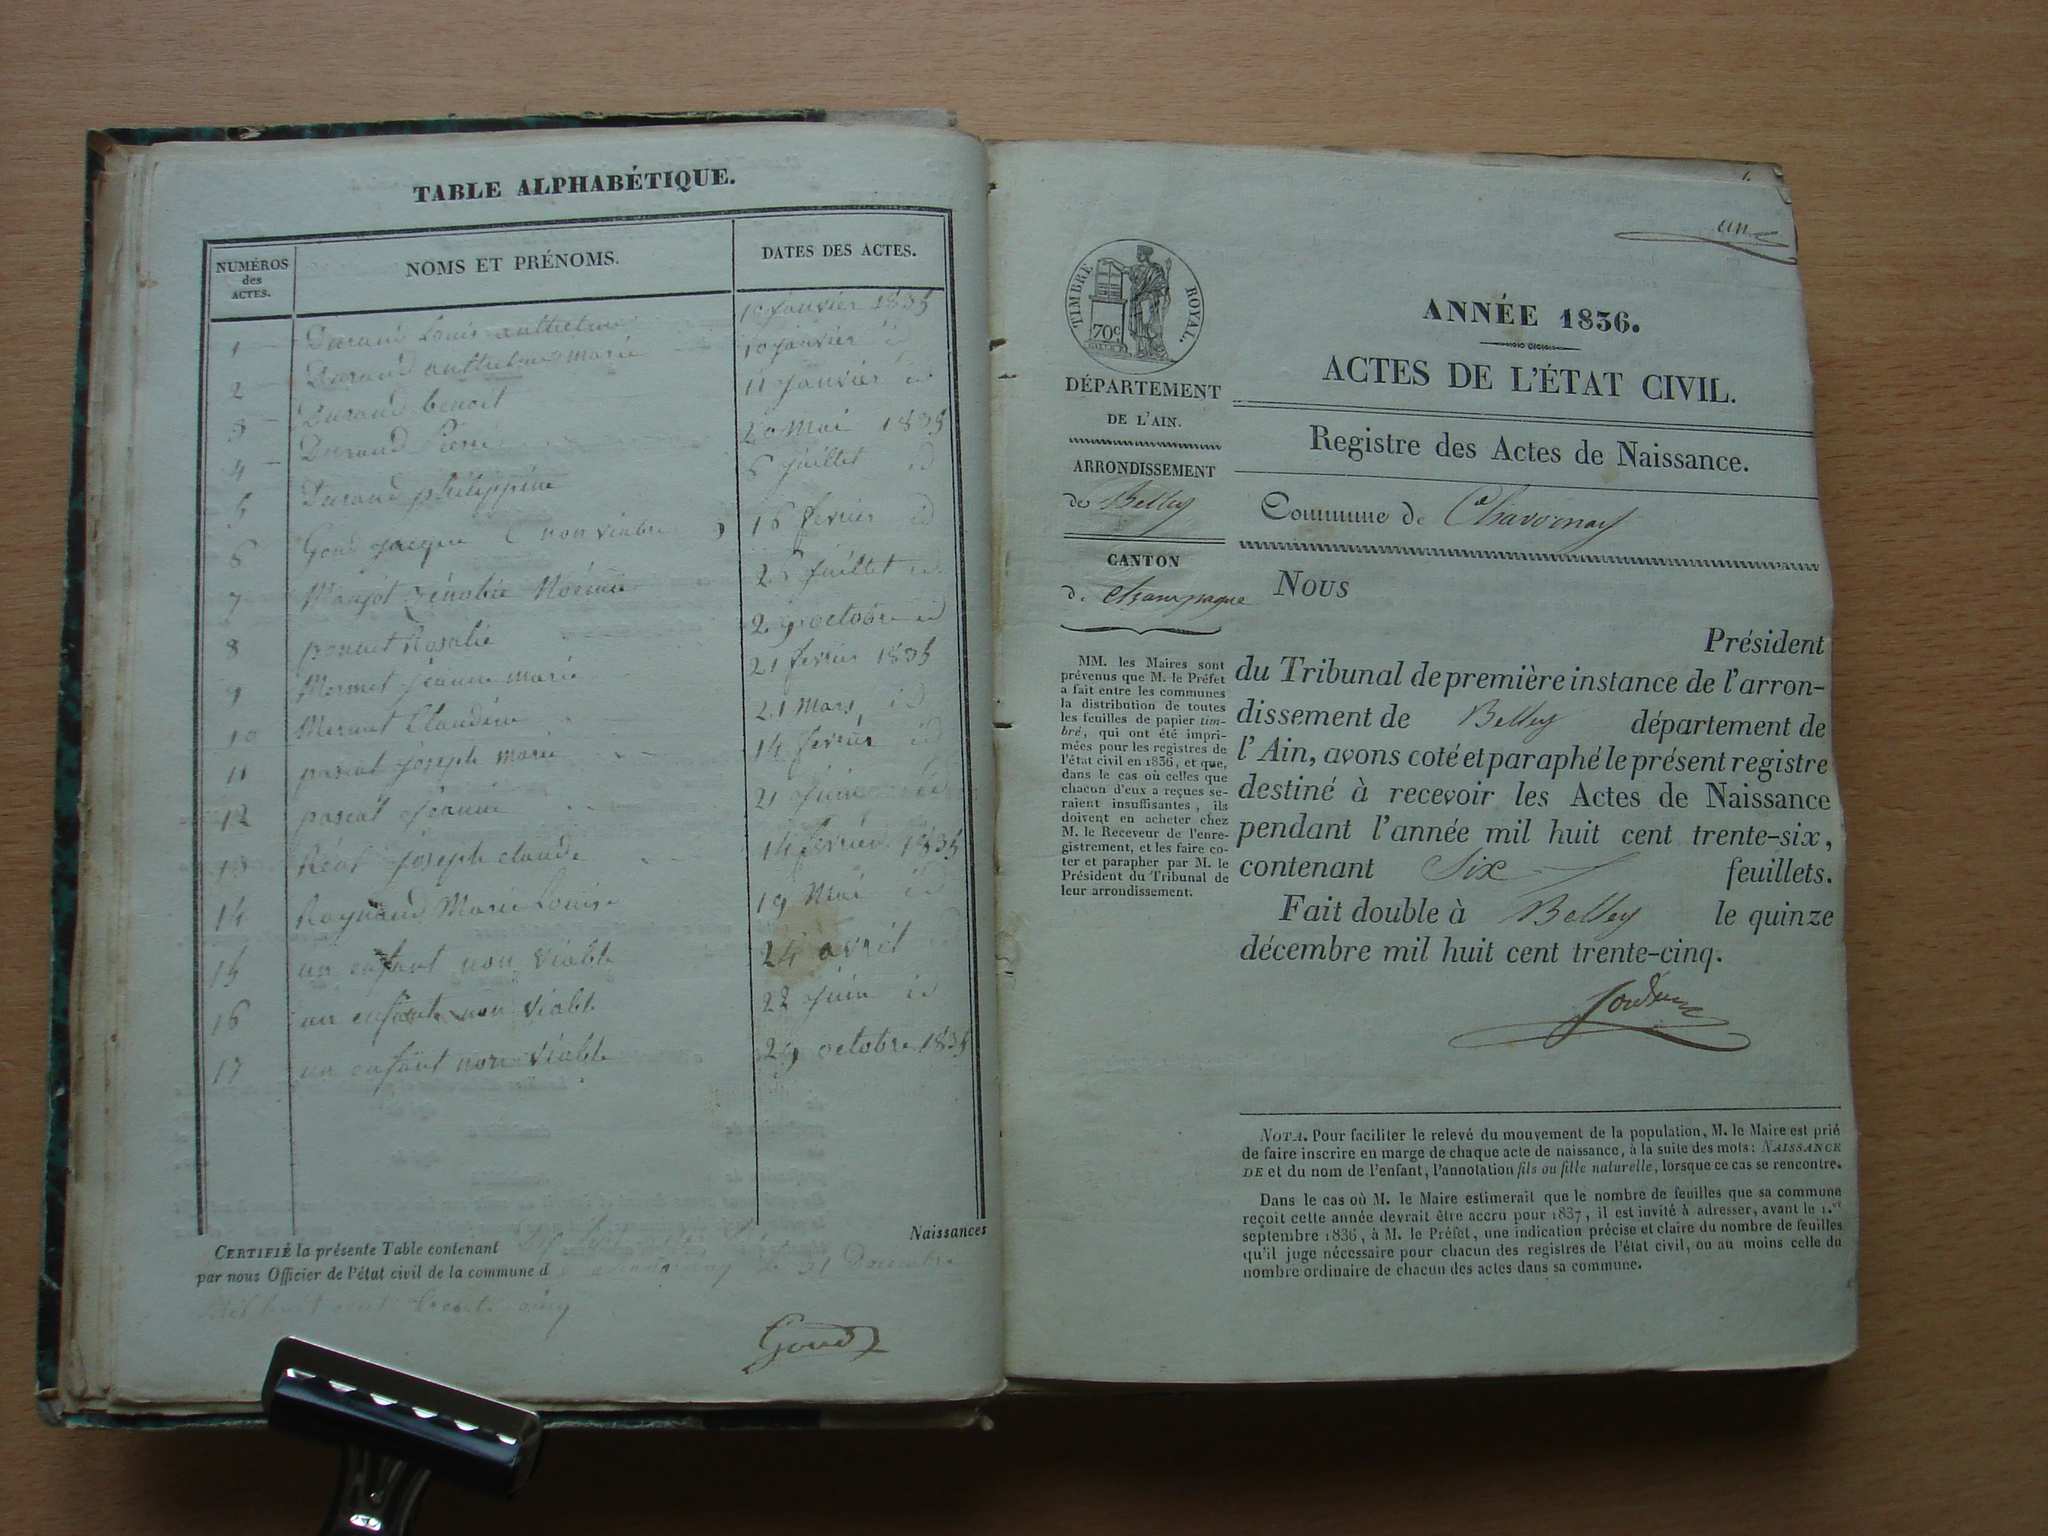 TABLE ALPHABÉTIQUE.
NUMÉROS des ACTES.
NOMS ET PRÉNOMS.
DATES DES ACTES.
1 Durand Louis anthelme 10 janvier 1835
2 Durand anthelme marie 10 janvier id
3 Durand benoit 11 janvier id
4 Durand Pierre 20 Mai 1835
5 Durand philippine 6 juillet id
6 Goud jacque ( non viable ) 16 fevrier id
7 Manjot Zénobie Noémie 25 juillet id
8 ponnet Rosalie 29 octobre id
9 Mermet jeanne marie 21 fevrier 1835
10 Mermet Claudine 21 Mars id
11 pascal joseph marie 14 fevrier id
12 pascal jeanne 21 juin id
13 Réal joseph claude 14 fevrier 1835
14 Raynaud Marie Louise 19 Mai id
15 un enfant non viable 24 avril id
16 un enfant non viable 22 juin id
17 un enfant non viable 29 octobre 1835
Naissances
CERTIFIÉ la présente Table contenant
par nous Officier de l'état civil de la commune d 31 Decembre
Mil huit cent trente cinq
Goud
1.
un
TIMBRE ROYAL.
70 c
DÉPARTEMENT
DE L'AIN.
ARRONDISSEMENT
de Belley
CANTON
de Champagne
MM. les Maires sont
prévenus que M. le Préfet
a fait entre les communes
la distribution de toutes
les feuilles de papier tim-
bré, qui ont été impri-
mées pour les registres de
l'état civil en 1836, et que,
dans le cas où celles que
chacun d'eux a reçues se-
raient insuffisantes, ils
doivent en acheter chez
M. le Receveur de l'enre-
gistrement, et les faire co-
ter et parapher par M. le
Président du Tribunal de
leur arrondissement.
ANNÉE 1836.
ACTES DE L'ÉTAT CIVIL.
Registre des Actes de Naissance.
Commune de Chavornay
NOUS
Président
du Tribunal de première instance de l'arron-
dissement de Belley département de
l'Ain, avons coté et paraphé le présent registre
destiné à recevoir les Actes de Naissance
pendant l'année mil huit cent trente-six,
contenant Six feuillets.
Fait double à Belley le quinze
décembre mil huit cent trente-cinq.
NOTA. Pour faciliter le relevé du mouvement de la population, M. le Maire est prié
de faire inscrire en marge de chaque acte de naissance, à la suite des mots: NAISSANCE
DE et du nom de l'enfant, l'annotation fils ou fille naturelle, lorsque ce cas se rencontre.
Dans le cas où M. le Maire estimerait que le nombre de feuilles que sa commune
reçoit cette année devrait être accru pour 1837, il est invité à adresser, avant le 1.er
septembre 1836, à M. le Préfet, une indication précise et claire du nombre de feuilles
qu'il juge nécessaire pour chacun des registres de l'état civil, ou au moins celle du
nombre ordinaire de chacun des actes dans sa commune.